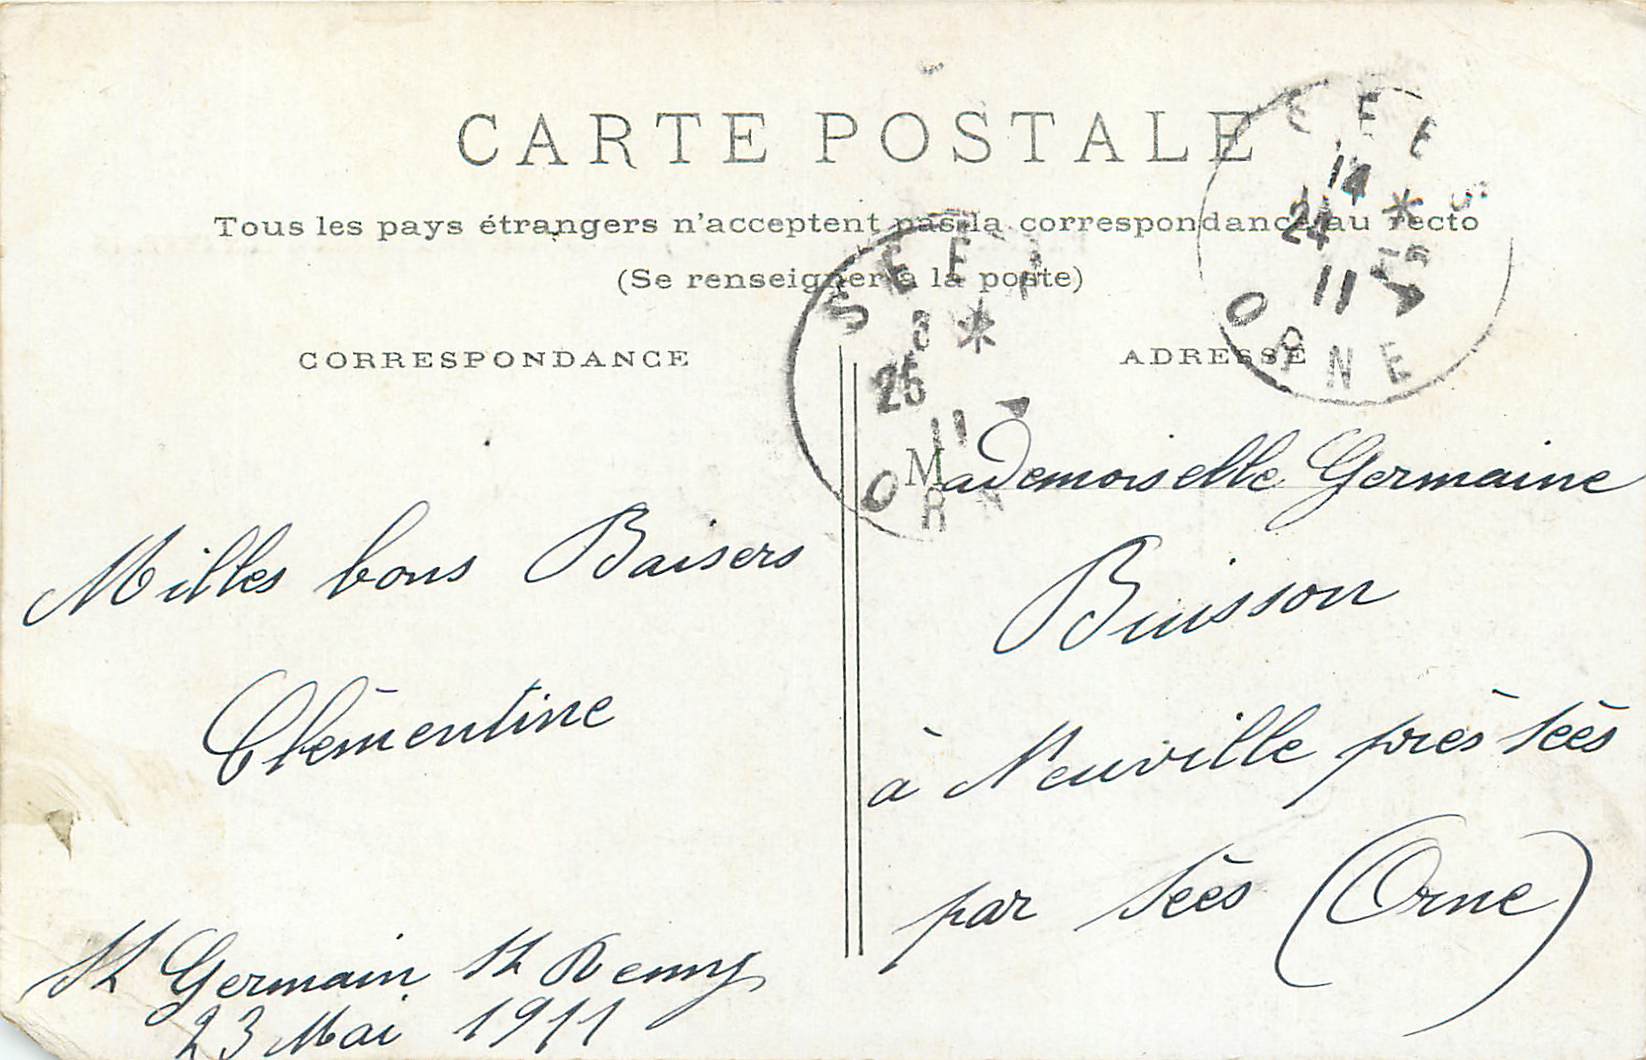 CARTE POSTALE
Tous les pays étrangers n'acceptent pas la correspondance au recto
(Se renseigner à la poste)
CORRESPONDANCE
Milles bons Baisers
Clémentine
St Germain St Remy
23 Mai 1911
ADRESSE
Mademoiselle Germaine
Buisson
à Neuville près Sées
par Sées (Orne)
SEES
14 *
24
11
ORNE
SEE
8 *
25
11
ORN